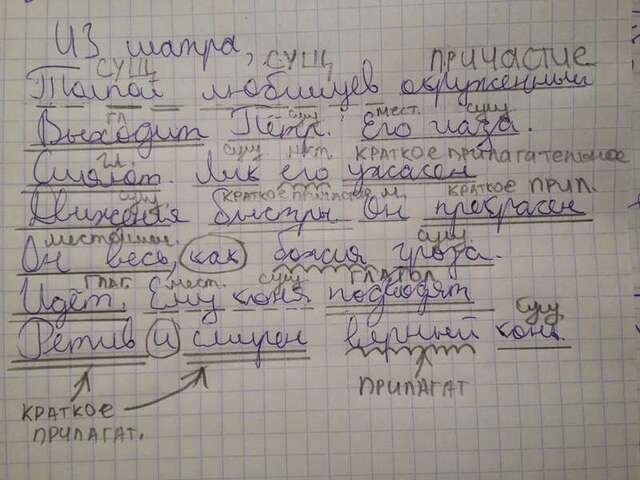 Из шатра,
СУЩ СУЩ ПРИЧАСТИЕ
Толпой любимцев окруженный
гл сущ мест. сущ
Выходит Петр. Его глаза
гл. сущ КРАТКОЕ ПРИЛАГАТЕЛЬНОЕ
Сияют. Лик его ужасен
сущ КРАТКОЕ КРАТКОЕ ПРИЛ.
Движенья быстры. Он прекрасен
местоимен. сущ
Он весь, как божия гроза.
ГЛАГ. мест. сущ ГЛАГОЛ
Идёт. Ему коня подводят
сущ
Ретив и смирен верный конь
КРАТКОЕ ПРИЛАГАТ. ПРИЛАГАТ